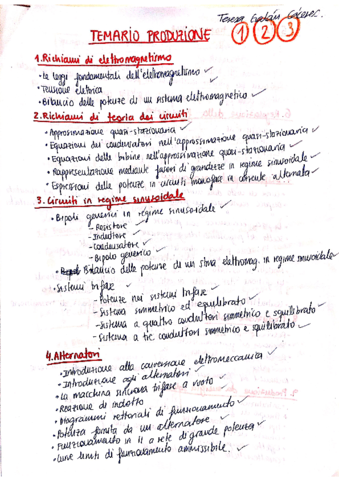 Teresa Cáceres.
TEMARIO PRODUZIONE ① ② ③
1. Richiami di elettromagnetismo
• Le leggi fondamentali dell'elettromagnetismo ✓
• Tensione elettrica ✓
• Bilancio delle potenze di un sistema elettromagnetico ✓
2. Richiami di teoria dei circuiti
• Approssimazione quasi-stazionaria ✓
• Equazioni dei condensatori nell'approssimazione quasi-stazionaria ✓
• Equazioni delle bobine nell'approssimazione quasi-stazionaria ✓
• Rappresentazione mediante fasori di grandezze in regime sinusoidale ✓
• Espressioni delle potenze in circuiti monofase in corrente alternata ✓
3. Circuiti in regime sinusoidale
• Bipoli generici in regime sinusoidale ✓
- Resistore
- Induttore
- Condensatore ✓
- Bipolo generico ✓
• Bilancio delle potenze di un sistema elettromag. in regime sinusoidale ✓
• Sistemi trifase ✓
- Potenze nei sistemi trifase ✓
- Sistema simmetrico ed equilibrato ✓
- Sistema a quattro conduttori simmetrico e squilibrato ✓
- Sistema a tre conduttori simmetrico e squilibrato ✓
4. Alternatori
• Introduzione alla conversione elettromeccanica ✓
• Introduzione agli alternatori ✓
• La macchina sincrona trifase a vuoto ✓
• Reazione di indotto ✓
• Diagrammi vettoriali di funzionamento ✓
• Potenza fornita da un alternatore ✓
• Funzionamento in // a rete di grande potenza ✓
• Curve limiti di funzionamento ammissibile. ✓